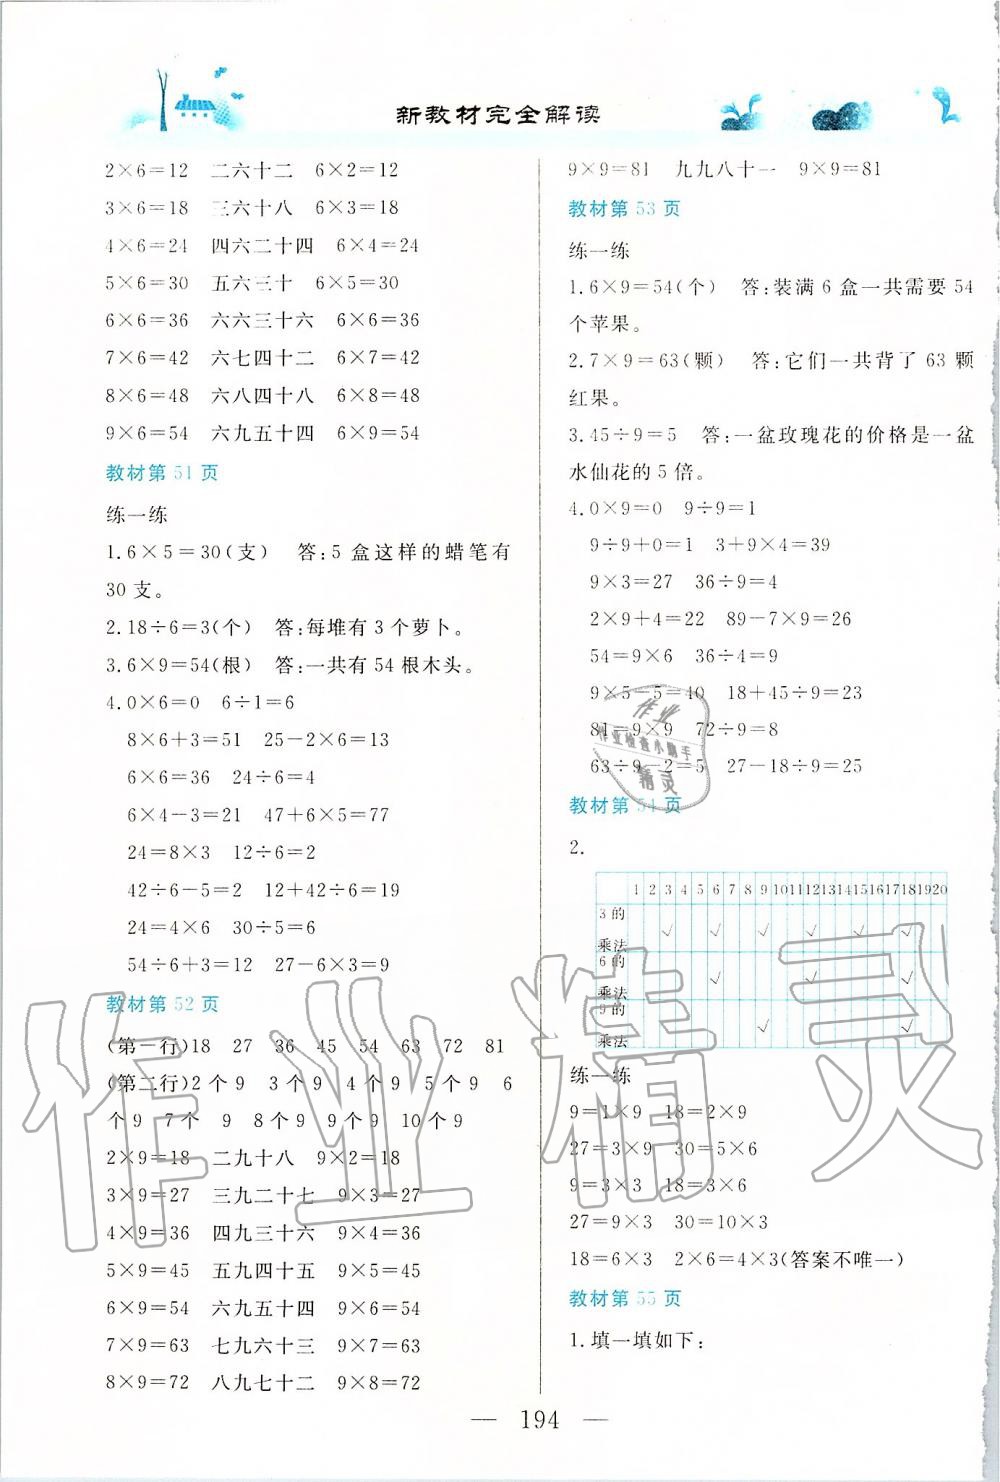 新教材完全解读
2×6=12 二六十二 6×2=12
3×6=18 三六十八 6×3=18
4×6=24 四六二十四 6×4=24
5×6=30 五六三十 6×5=30
6×6=36 六六三十六 6×6=36
7×6=42 六七四十二 6×7=42
8×6=48 六八四十八 6×8=48
9×6=54 六九五十四 6×9=54
教材第 51 页
练一练
1.6×5=30(支) 答:5 盒这样的蜡笔有
30 支。
2.18÷6=3(个) 答:每堆有 3 个萝卜。
3.6×9=54(根) 答:一共有 54 根木头。
4.0×6=0 6÷1=6
8×6+3=51 25-2×6=13
6×6=36 24÷6=4
6×4-3=21 47+6×5=77
24=8×3 12÷6=2
42÷6-5=2 12+42÷6=19
24=4×6 30÷5=6
54÷6+3=12 27-6×3=9
教材第 52 页
(第一行)18 27 36 45 54 63 72 81
(第二行)2 个 9 3 个 9 4 个 9 5 个 9 6
个 9 7 个 9 8 个 9 9 个 9 10 个 9
2×9=18 二九十八 9×2=18
3×9=27 三九二十七 9×3=27
4×9=36 四九三十六 9×4=36
5×9=45 五九四十五 9×5=45
6×9=54 六九五十四 9×6=54
7×9=63 七九六十三 9×7=63
8×9=72 八九七十二 9×8=72
9×9=81 九九八十一 9×9=81
教材第 53 页
练一练
1.6×9=54(个) 答:装满 6 盒一共需要 54
个苹果。
2.7×9=63(颗) 答:它们一共背了 63 颗
红果。
3.45÷9=5 答:一盆玫瑰花的价格是一盆
水仙花的 5 倍。
4.0×9=0 9÷9=1
9÷9+0=1 3+9×4=39
9×3=27 36÷9=4
2×9+4=22 89-7×9=26
54=9×6 36÷4=9
9×5-5=40 18+45÷9=23
81=9×9 72÷9=8
63÷9-2=5 27-18÷9=25
教材第 54 页
2.
1 2 3 4 5 6 7 8 9 10 11 12 13 14 15 16 17 18 19 20
3 的
乘法 √ √ √ √ √ √
6 的
乘法 √ √ √
9 的
乘法 √ √
练一练
9=1×9 18=2×9
27=3×9 30=5×6
9=3×3 18=3×6
27=9×3 30=10×3
18=6×3 2×6=4×3(答案不唯一)
教材第 55 页
1.填一填如下:
— 194 —
作业
作业检查小助手
精灵
作业精灵